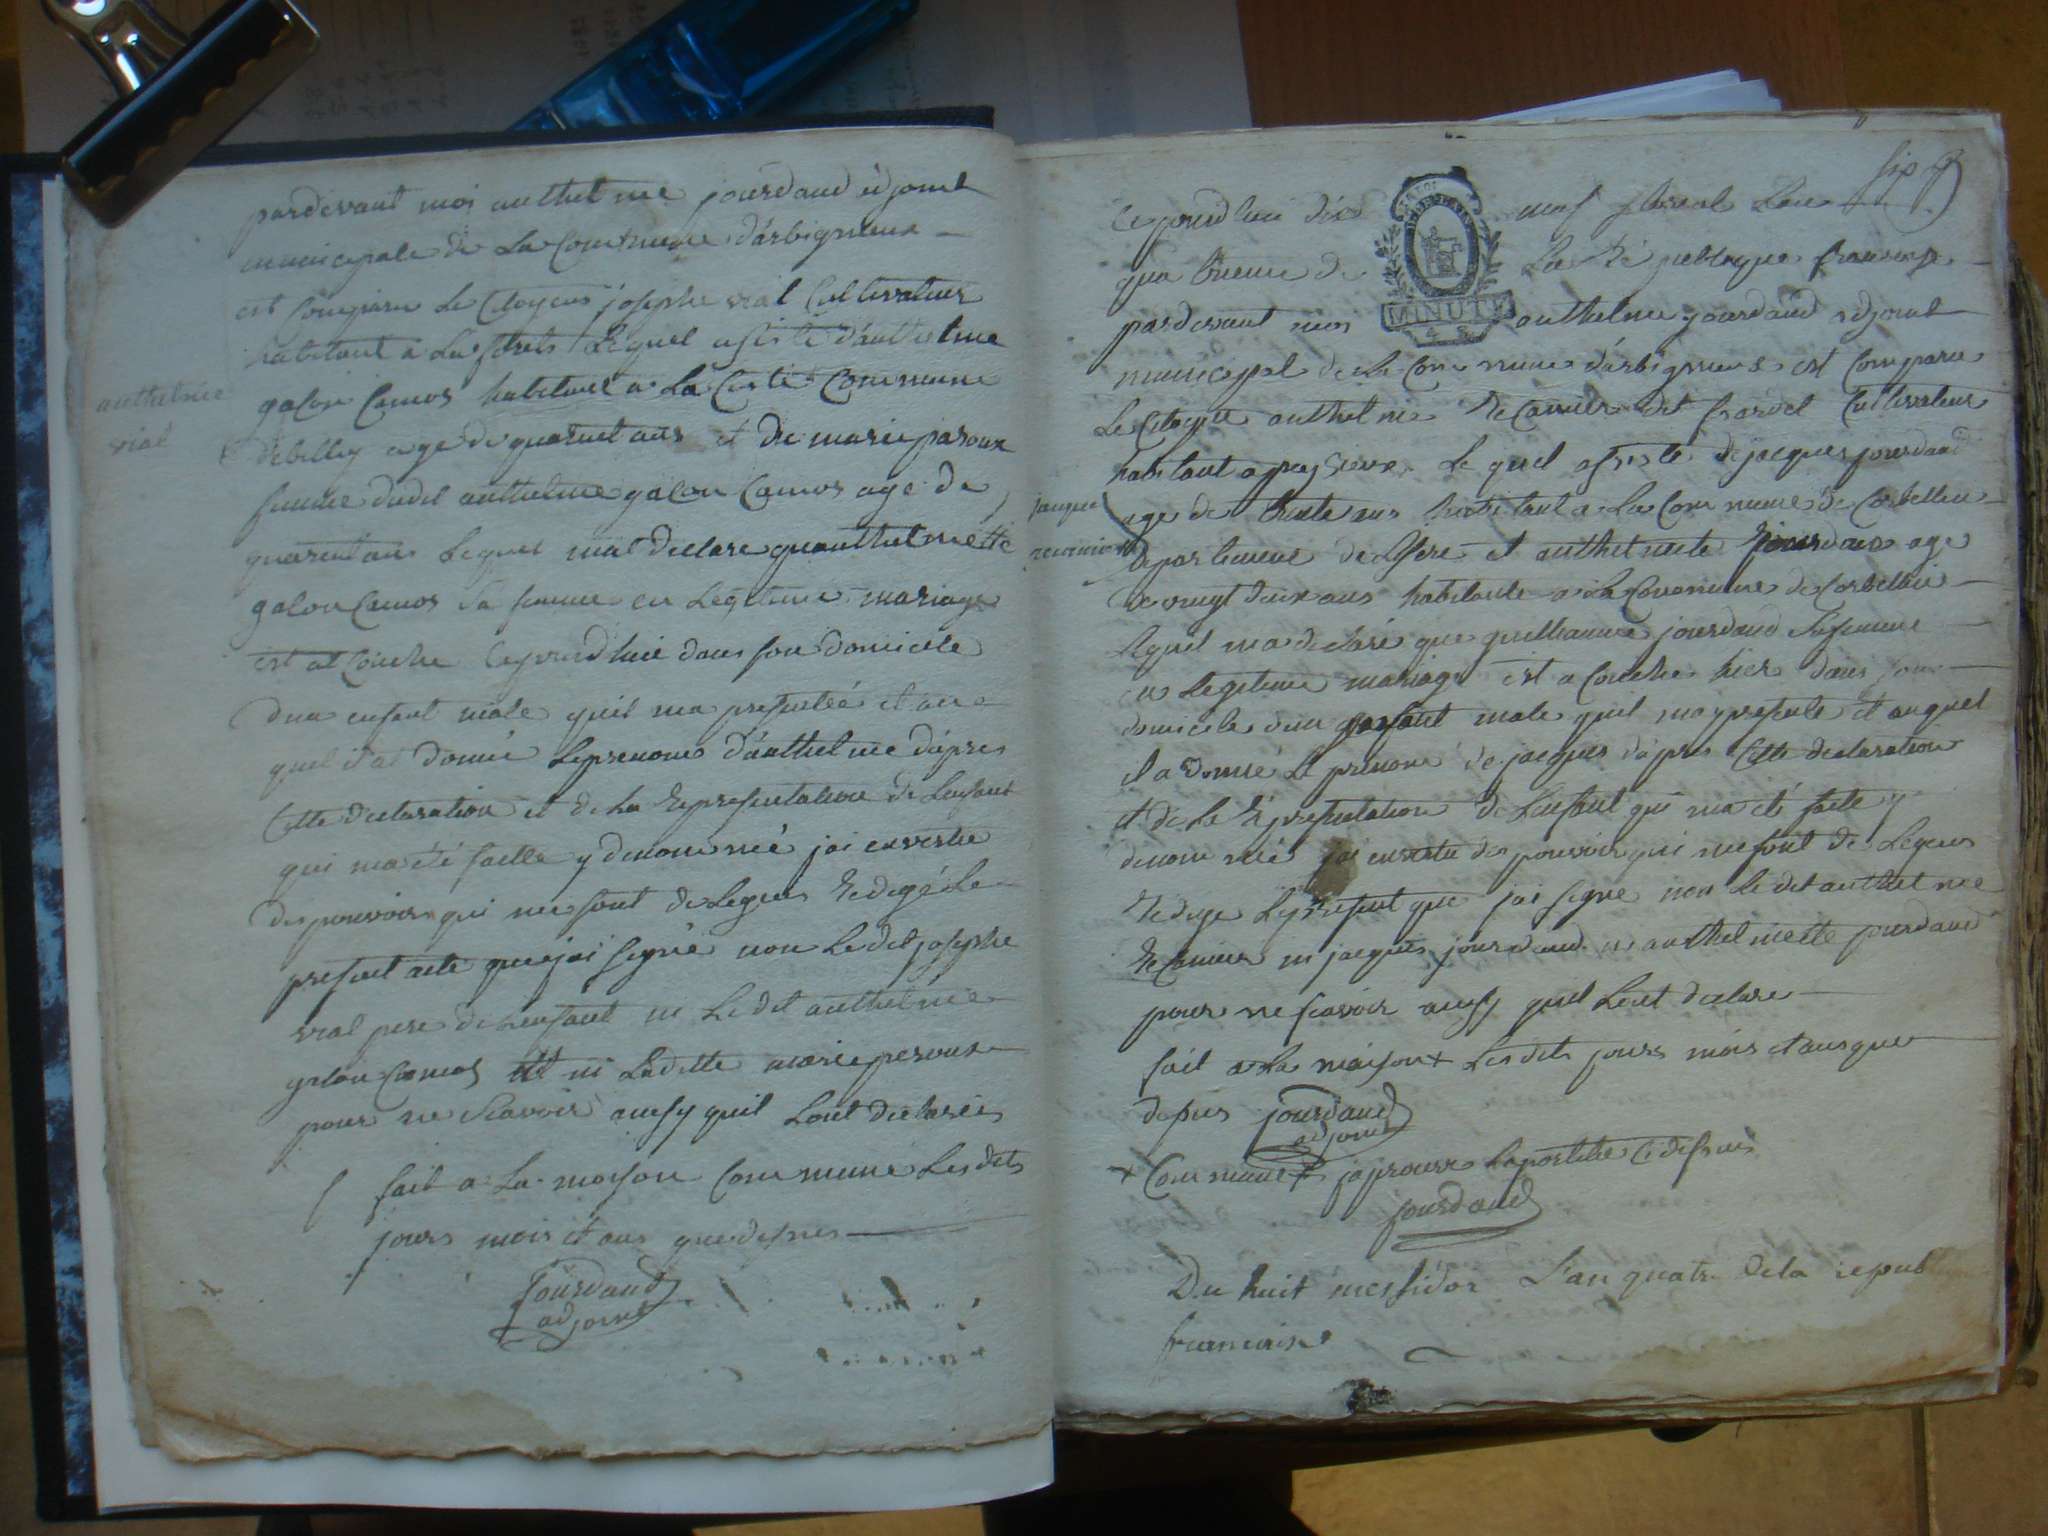 anthelme
vial
pardevant moi anthelme jourdand adjoint
municipale de La Commune d'arbignieux
est Comparu Le Citoyens josephe vial Cultivateur
habitant a La Lequel assisté d'anthelme
galon Camos habitant a La Commune
de billey age de quarant ans et de marie paroux
femme dudit anthelme galon Camos age de
quarent ans Lequel mat declare quanthelmette
galon Camos sa femme en Legitime mariage
est at Couche Cejourdhui dans son domicile
dun enfant male quil ma presentée et au
quel il at donné Leprenom d'anthelme d'apres
Cette declaration et de La representation de Lenfant
qui ma été faitte y denommé jai envertu
des pouvoirs qui me sont delegues redigé Le
present acte que jai signé non Ledit josephe
vial pere de Lenfant ni Ledit anthelme
galon Camos ni Ladette marie peroux
pour ne scavoir ausy quil Lont declarés
fait a La maison Commune Les dits
jours mois et ans que dessus
Jourdand
adjoint
Cejourdhui dix neuf floreal Lan
quatrieme de La Republique francaise
MINUTE
pardevant moi anthelme jourdand adjoint
municipal de La Commune d'arbignieux est Comparu
Le Citoyen anthelme Recamier dit Cultivateur
habitant a Le quel assisté de jacques jourdand
age de trente ans habitant a La Commune de Corbellin
jacque
recamier
departement de Lisere et anthelmette jourdand age
de vingt deux ans habitante a La Commune de Corbellin
Lequel ma declaré que guillaume jourdand safemme
en Legitime mariage est a Couche hier dans son
domicile dun enfant male quil may presente et auquel
il a donné Le prenom de jacques dapres Cette declaration
et de La representation de Lenfant qui ma été faite y
denommé jai envertu des pouvoirs qui me sont delegues
redige Le present que jai signe non Ledit anthelme
Recamier ni jacques jourdand ni anthelmette jourdand
pour ne scavoir ausy quil Lont declare
fait a La maison + Les dits jours mois et ans que
desus jourdand
adjoint
+ Commune + japrouve Lapostille Cidessus
jourdand
Du huit messidor L'an quatre dela republ
francaise